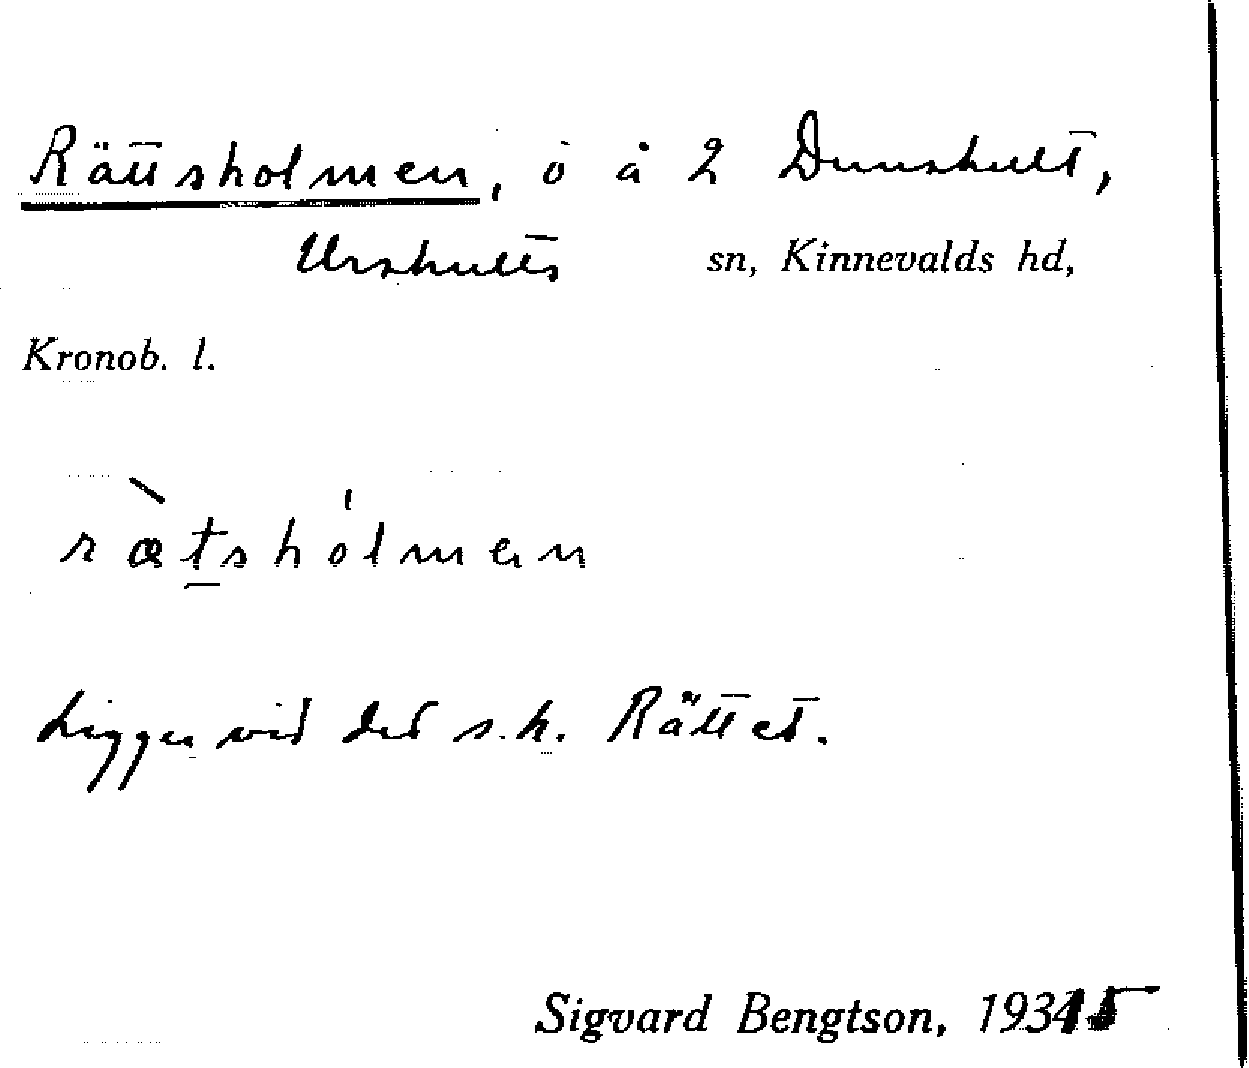 Rättsholmen, ö å 2 Dunshult,
Urshults sn, Kinnevalds hd,
Kronob. l.
rætshólmen
Ligger vid det s.k. Rättet.
Sigvard Bengtson, 1935